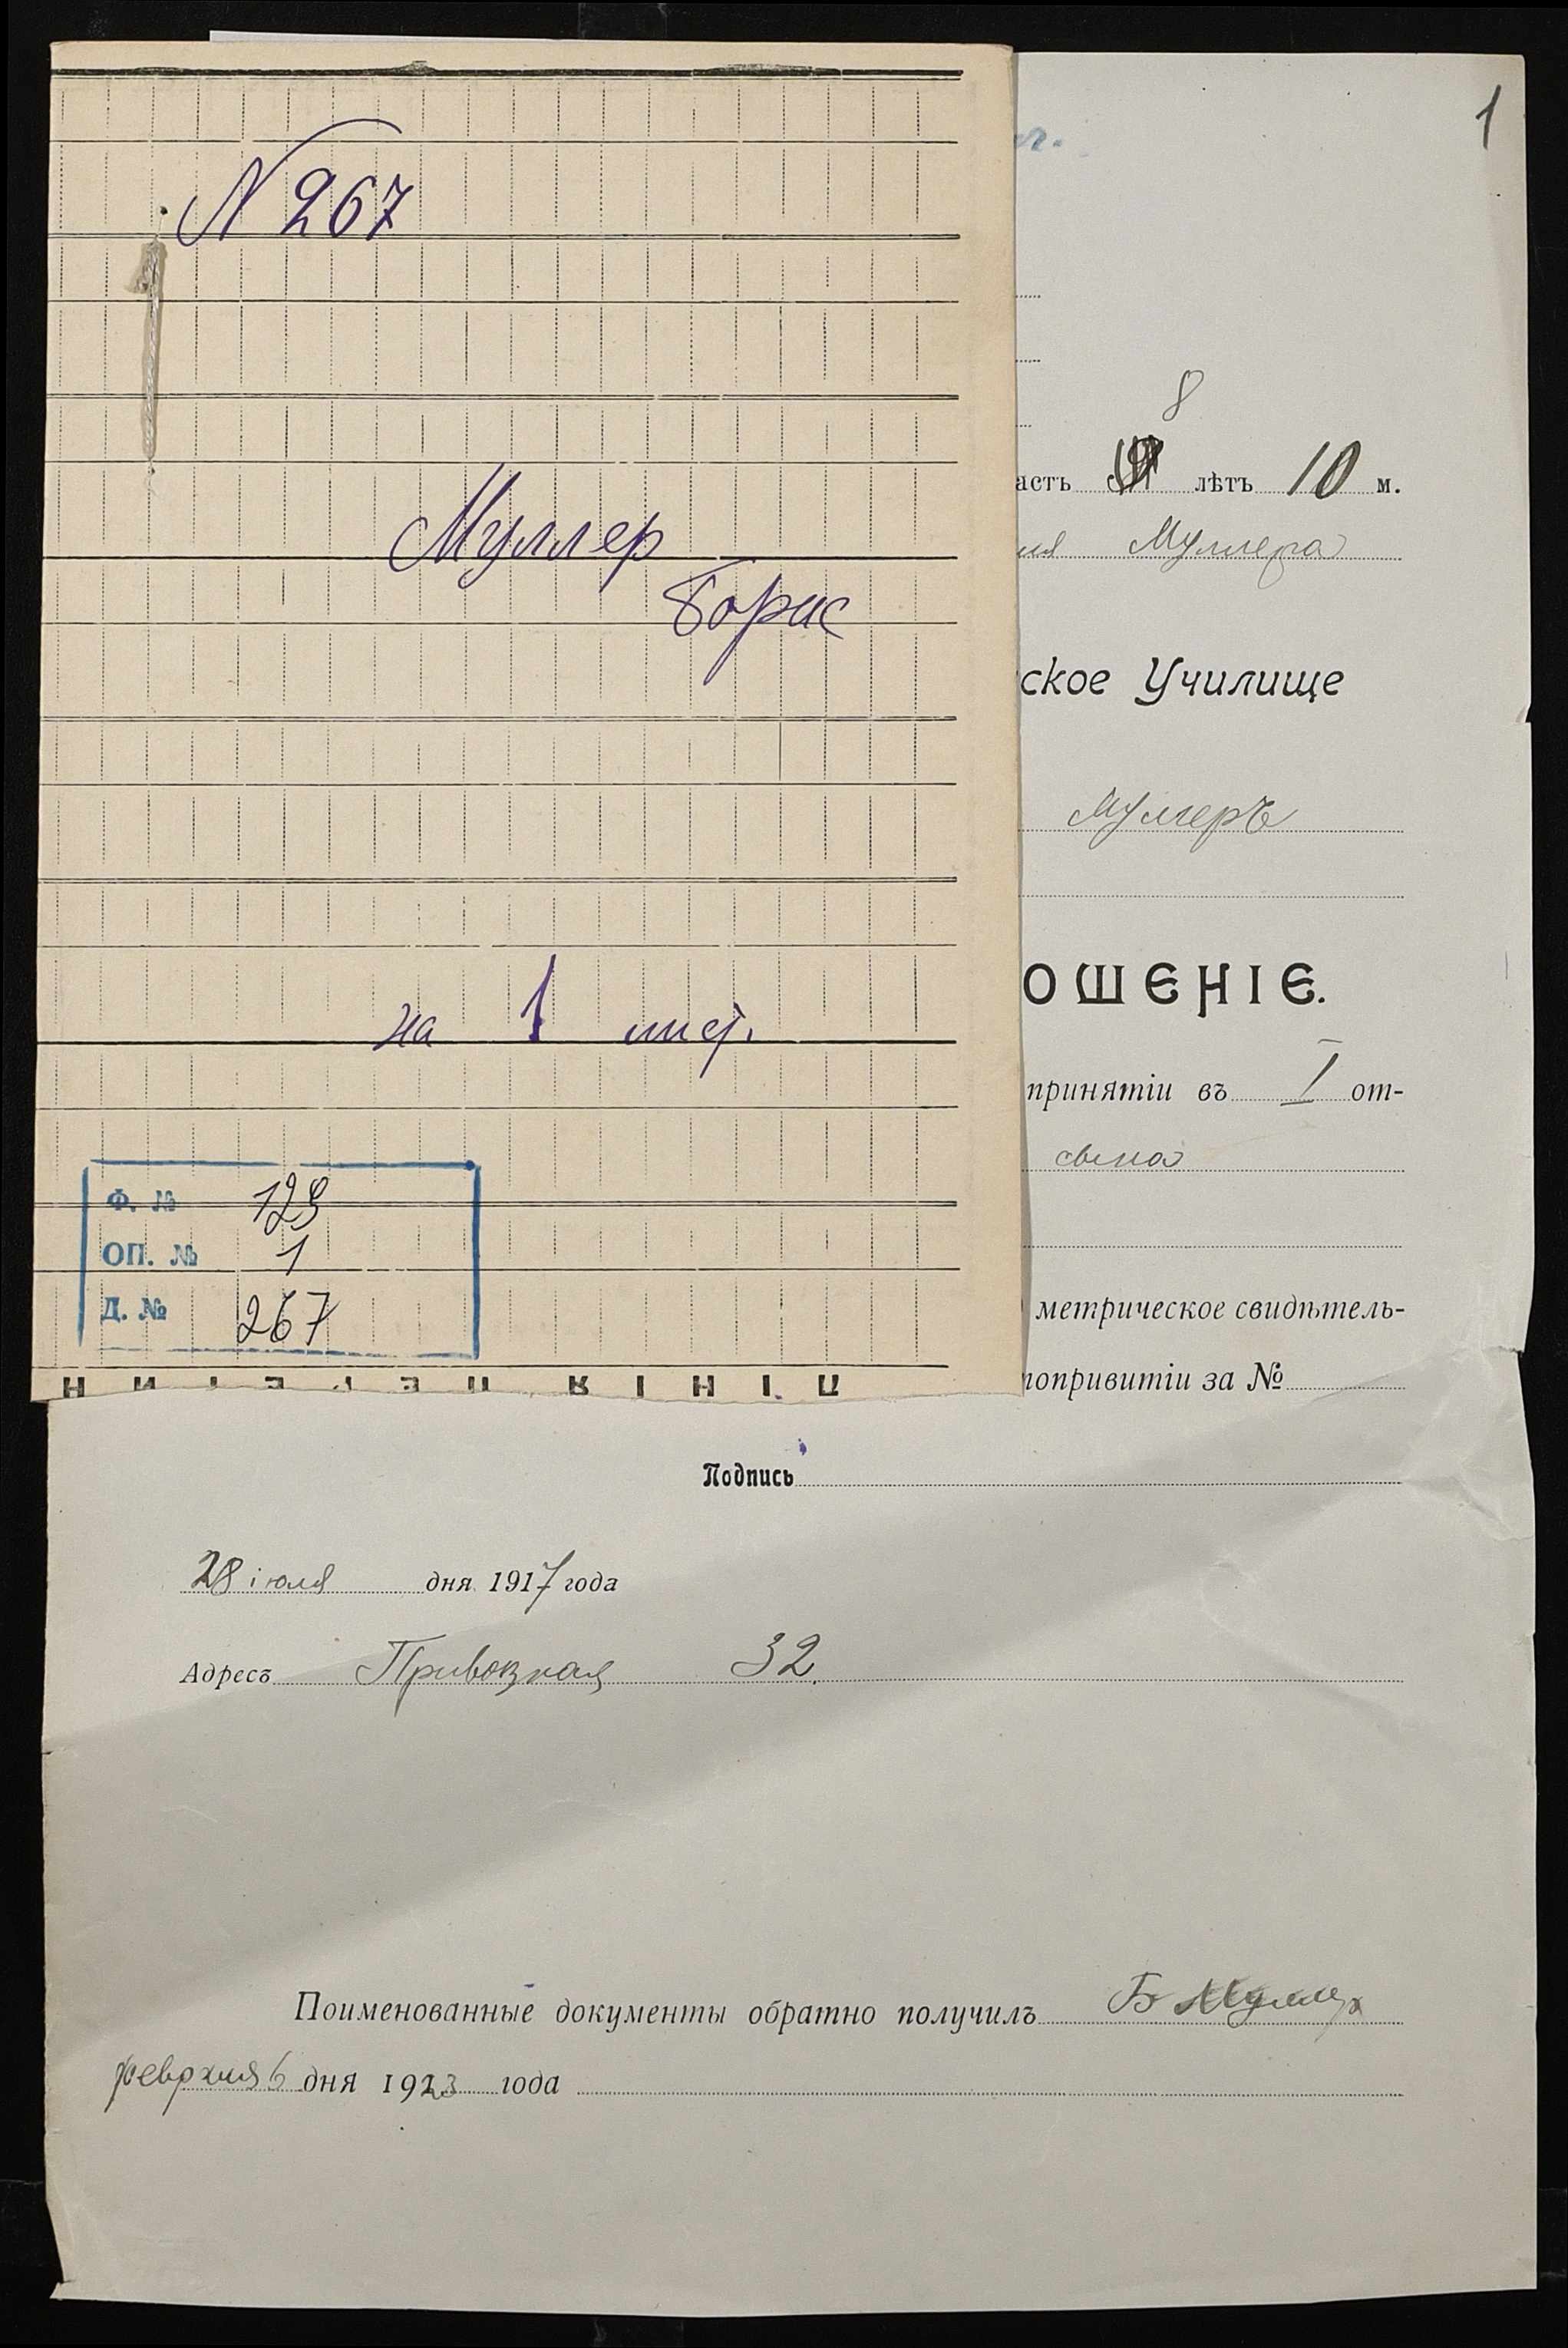 N 267
Муллер
Борис
на 1 лист.
Ф. № 129
ОП. № 1
Д. № 267
1
г.
8
астъ лѣтъ 10 м.
ия Муллера
ское Училище
Муллеръ
ОШЕНІЕ.
принятіи въ I от-
сына
метрическое свидѣтель-
опривитіи за №
Подпись
28 іюля дня 1917 года
Адресъ Привозная 32.
Поименованные документы обратно получилъ Б Муллер
февраля 6 дня 1923 года